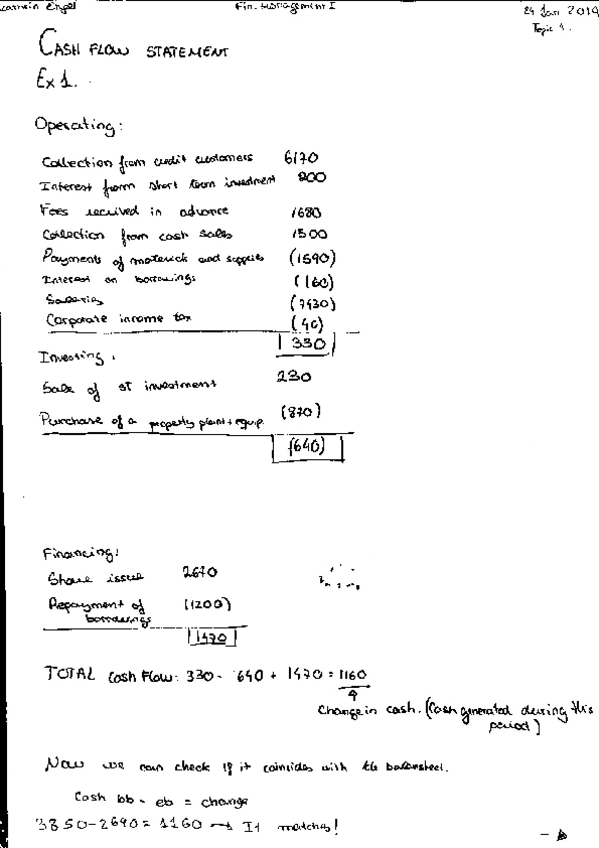 Engel Fin. Management I 24 Jan 2019
Topic 1.
CASH FLOW STATEMENT
Ex 1.
Operating:
Collection from credit customers 6170
Interest from short term investment 200
Fees received in advance 1680
Collection from cash sales 1500
Payments of materials and supplies (1590)
Interest on borrowings (160)
Salaries (7430)
Corporate income tax (40)
330
Investing:
Sale of ST investment 230
Purchase of a property plant + equip. (870)
(640)
Financing:
Share issue 2670
Repayment of (1200)
borrowings
1470
TOTAL Cash Flow: 330 - 640 + 1470 = 1160
Change in cash. (Cash generated during this
period)
Now we can check if it coincides with the
Cash bb - eb = change
3850-2690 = 1160 → It matches!